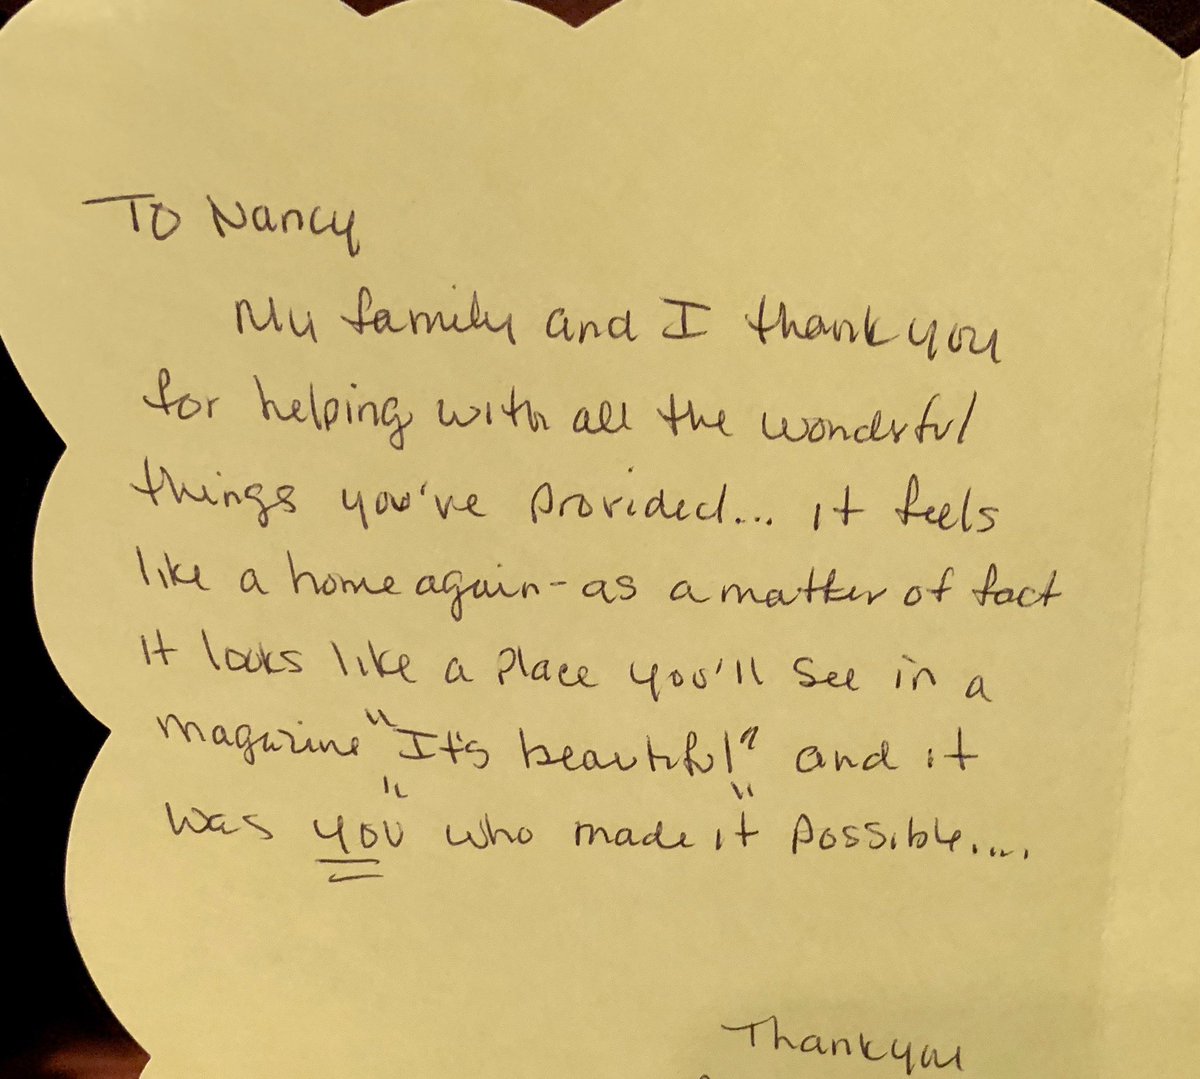 To Nancy
My family and I thank you
for helping with all the wonderful
things you've provided... it feels
like a home again - as a matter of fact
it looks like a place you'll see in a
magazine "It's beautiful" and it
was you who made it possible....
Thank you